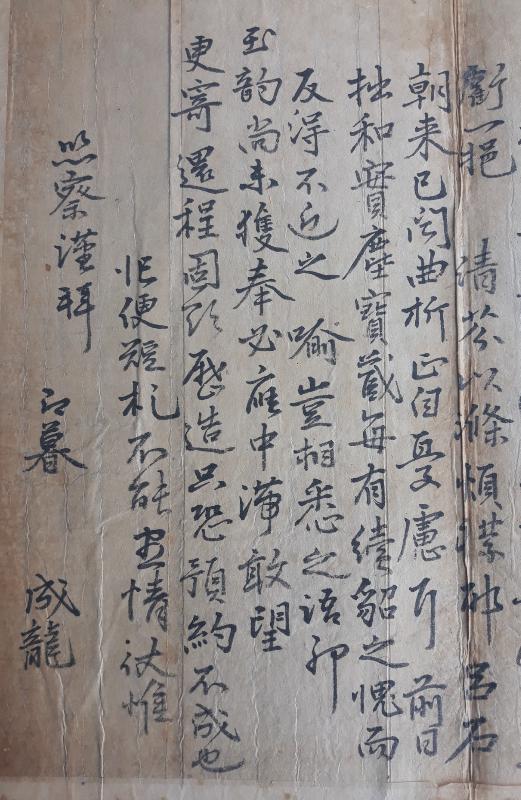 斲一挹 清芬以滌煩襟耶 呂石
朝来已閱曲折正自憂慮耳 前日
拙和實塵寶藏每有續貂之愧而
反得不近之 喻豈相悉之語耶
玉韵尚未獲奉必應中滯敢望
更寄還程固欲歷造只恐預約不成也
忙便短札不能盡情伏惟
照察謹拜 即暮 成龍